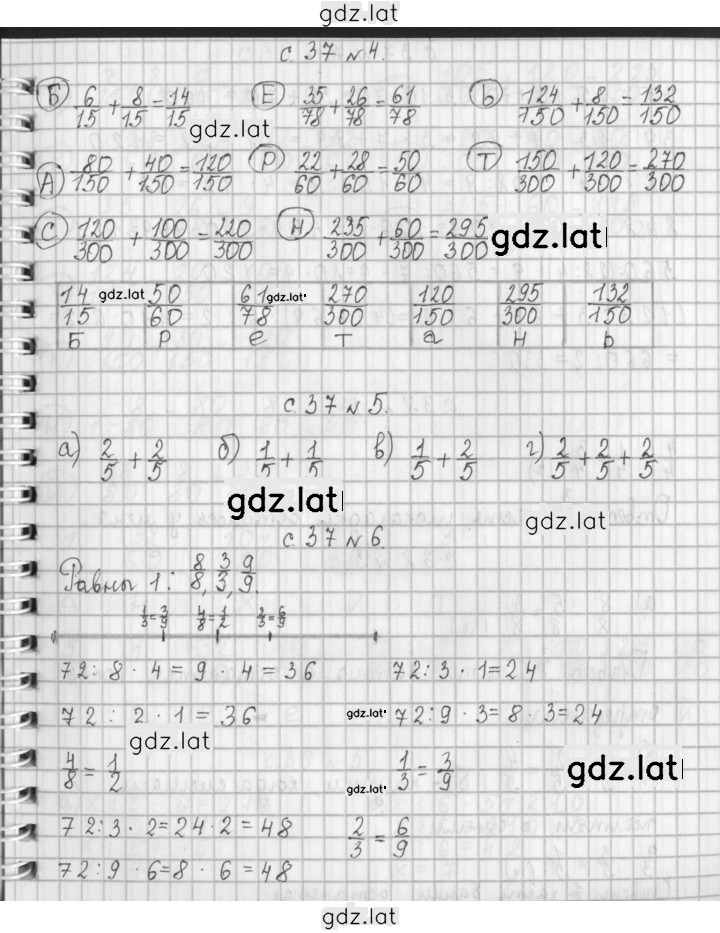 gdz.lat
с. 37 № 4.
Б 6/15 + 8/15 = 14/15 Е 35/78 + 26/78 = 61/78 Ь 124/150 + 8/150 = 132/150
gdz.lat
А 80/150 + 40/150 = 120/150 Р 22/60 + 28/60 = 50/60 Т 150/300 + 120/300 = 270/300
С 120/300 + 100/300 = 220/300 Н 235/300 + 60/300 = 295/300 gdz.lat
14/15 gdz.lat 50/60 61/78 gdz.lat 270/300 120/150 295/300 132/150
Б Р е Т а Н Ь
с. 37 № 5.
а) 2/5 + 2/5 б) 1/5 + 1/5 в) 1/5 + 2/5 г) 2/5 + 2/5 + 2/5
gdz.lat gdz.lat
с. 37 № 6.
Равны 1: 8/8, 3/3, 9/9.
1/3 = 3/9 4/8 = 1/2 2/3 = 6/9
72 : 8 · 4 = 9 · 4 = 36 72 : 3 · 1 = 24
72 : 2 · 1 = 36 gdz.lat 72 : 9 · 3 = 8 · 3 = 24
gdz.lat
4/8 = 1/2 1/3 = 3/9 gdz.lat
gdz.lat
72 : 3 · 2 = 24 · 2 = 48 2/3 = 6/9
72 : 9 · 6 = 8 · 6 = 48
gdz.lat